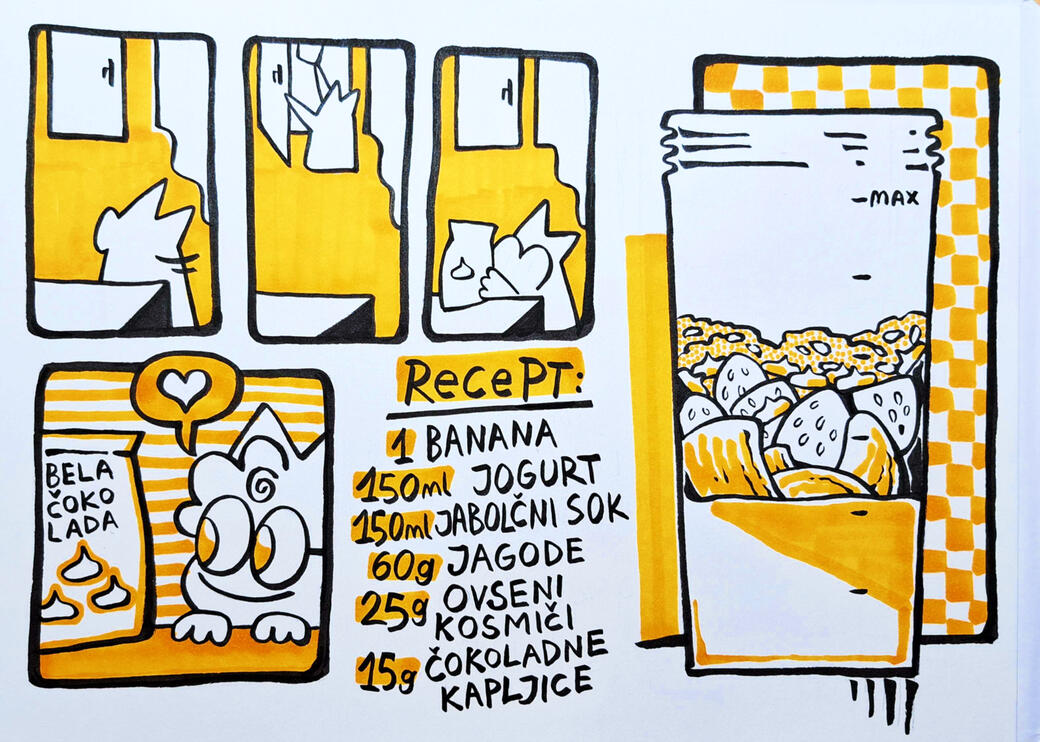 BELA
ČOKO
LADA
RecePT:
1 BANANA
150ml JOGURT
150ml JABOLČNI SOK
60g JAGODE
25g OVSENI
KOSMIČI
15g ČOKOLADNE
KAPLJICE
-MAX